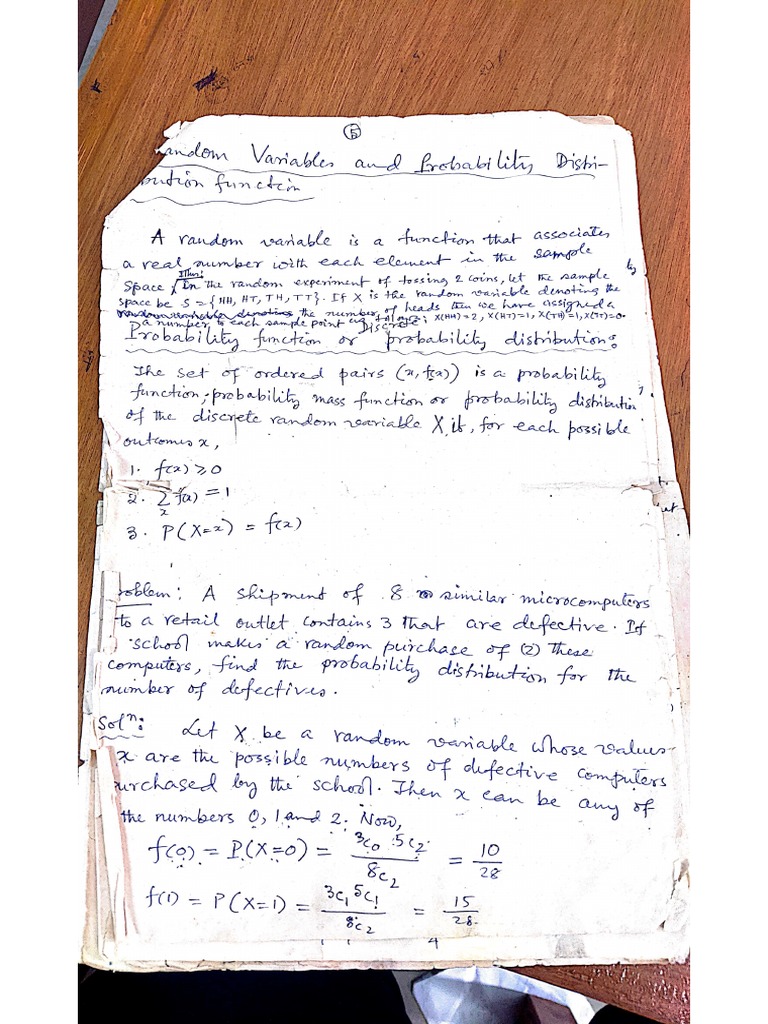 5
andom Variables and Probability Distri-
bution function
A random variable is a function that associates
a real number with each element in the sample
space. Thus: In the random experiment of tossing 2 coins, let the sample
space be S = {HH, HT, TH, TT}. If X is the random variable denoting the
the number of heads then we have assigned a
a number to each sample point X(HH)=2, X(HT)=1, X(TH)=1, X(TT)=0.
Discrete
Probability function or probability distribution:
The set of ordered pairs (x, f(x)) is a probability
function, probability mass function or probability distribution
of the discrete random variable X if, for each possible
outcomes x,
1. f(x) ≥ 0
2. Σ f(x) = 1
x
3. P(X=x) = f(x)
roblem: A shipment of 8 similar microcomputers
to a retail outlet contains 3 that are defective. If
school makes a random purchase of (2) these
computers, find the probability distribution for the
number of defectives.
Solⁿ: Let X be a random variable whose values
x are the possible numbers of defective computers
urchased by the school. Then x can be any of
the numbers 0, 1 and 2. Now,
f(0) = P(X=0) = 3c₀ 5c₂ / 8c₂ = 10/28
f(1) = P(X=1) = 3c₁ 5c₁ / 8c₂ = 15/28